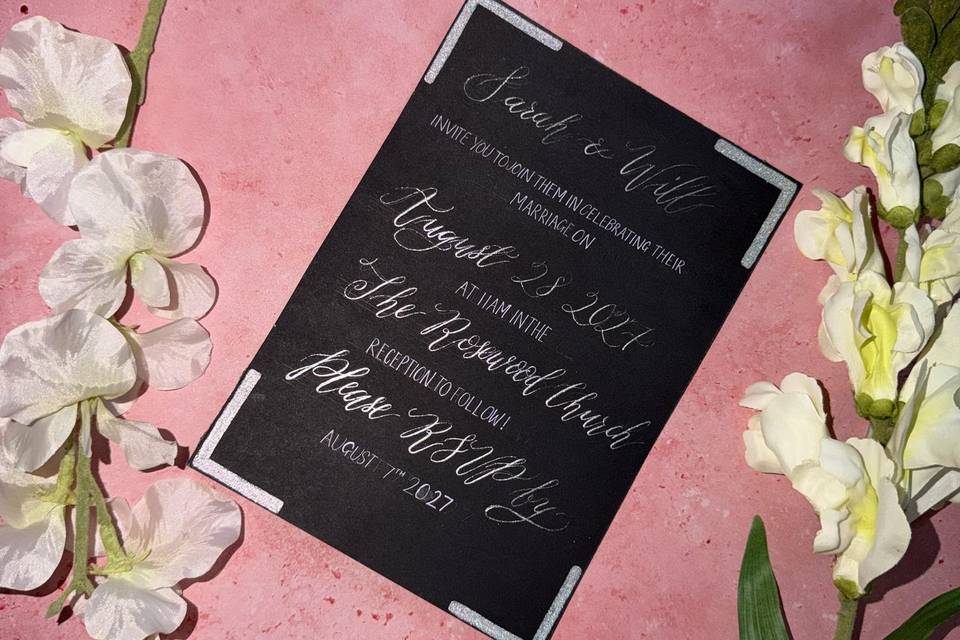 Sarah & Will
INVITE YOU TO JOIN THEM IN CELEBRATING THEIR
MARRIAGE ON
August 28 2027
AT 11AM IN THE
The Rosewood Church
RECEPTION TO FOLLOW!
Please RSVP by
AUGUST 7TH 2027